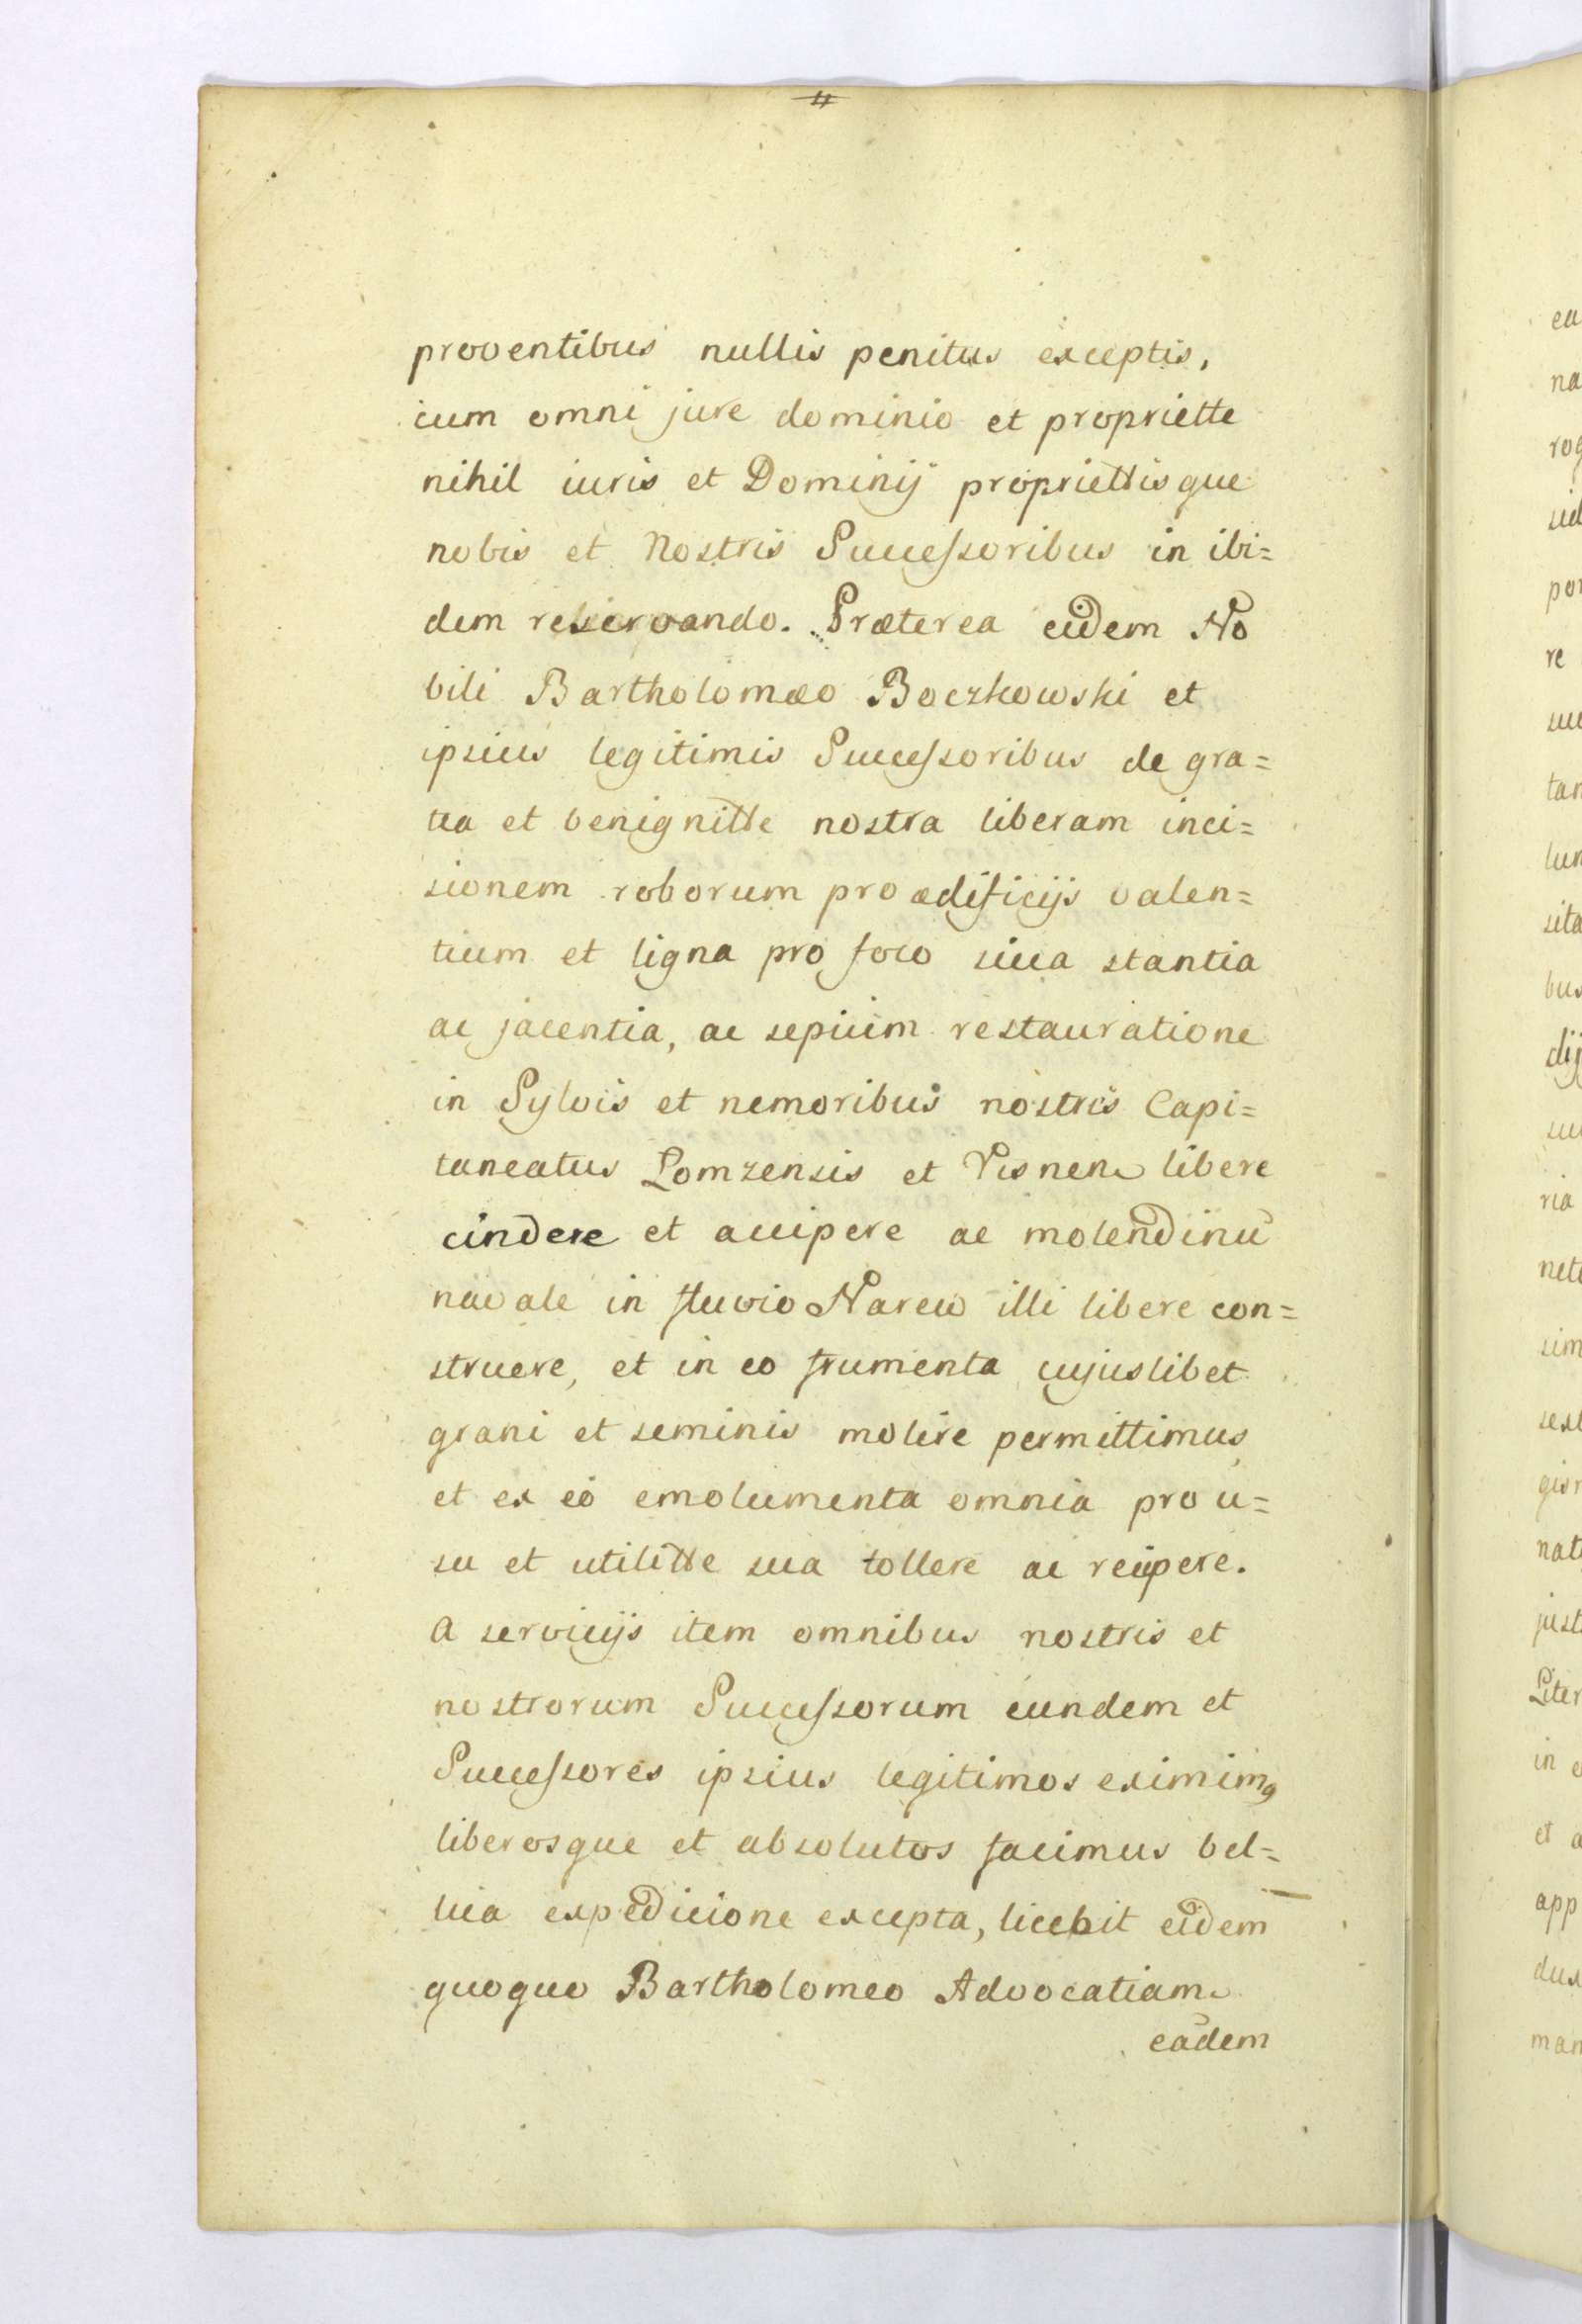 4
proventibus nullis penitus exceptis,
cum omni jure dominio et propriette
nihil iuris et Dominij propriettisque
nobis et Nostris Successoribus in ibi=
dem reservando. Præterea eidem No
bili Bartholomæo Boczkowski et
ipsius legitimis Successoribus de gra=
tia et benignitte nostra liberam inci=
sionem roborum pro ædificijs valen=
tium et ligna pro foco sicca stantia
ac jacentia, ac sepium restauratione
in Sylvis et nemoribus nostris Capi=
taneatus Lomzensis et Visnen libere
cindere et accipere ac molendinu
navale in fluvio Narew illi libere con=
struere, et in eo frumenta cujuslibet
grani et seminis molire permittimus,
et ex eo emolumenta omnia pro u=
su et utilitte sua tollere ac recipere.
a servicijs item omnibus nostris et
nostrorum Successorum eundem et
Successores ipsius legitimos eximimq
liberosque et absolutos facimus bel=
lica expedicione excepta, licebit eidem
quoquo Bartholomeo Advocatiam
eadem
ea
na
rog
sid
por
re
tan
lun
sita
bus
dij
ria
sim
nat
just
Liter
in e
et a
app
dux
man